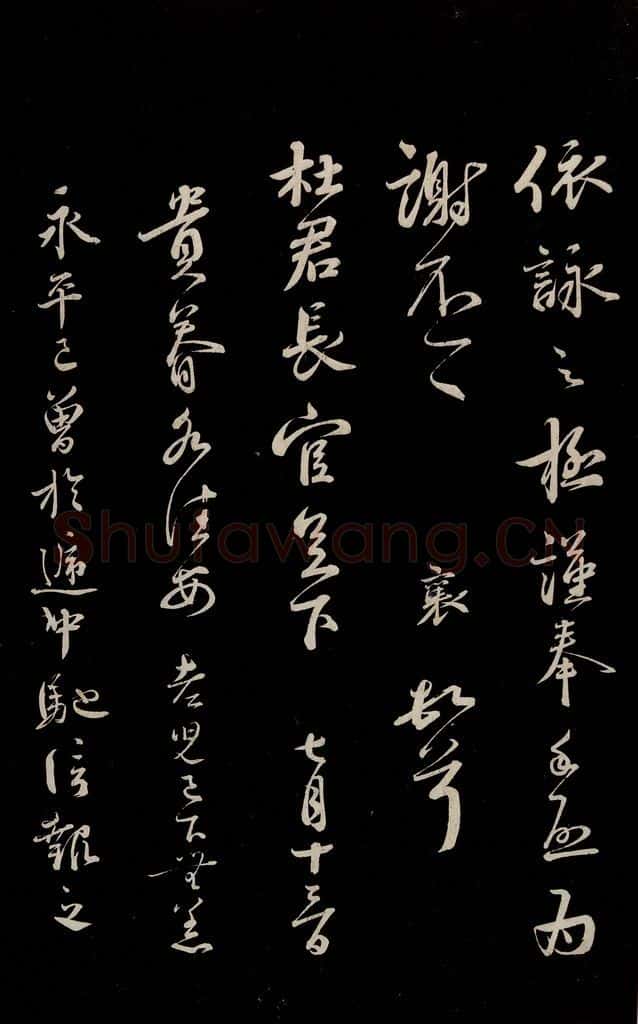 依詠之極謹奉手啓為
謝不一一 襄頓首
杜君長官足下 七月十三日
貴眷各佳安 老兒已下無恙
永平已曾於遞中馳信報之
Shufawang.CN